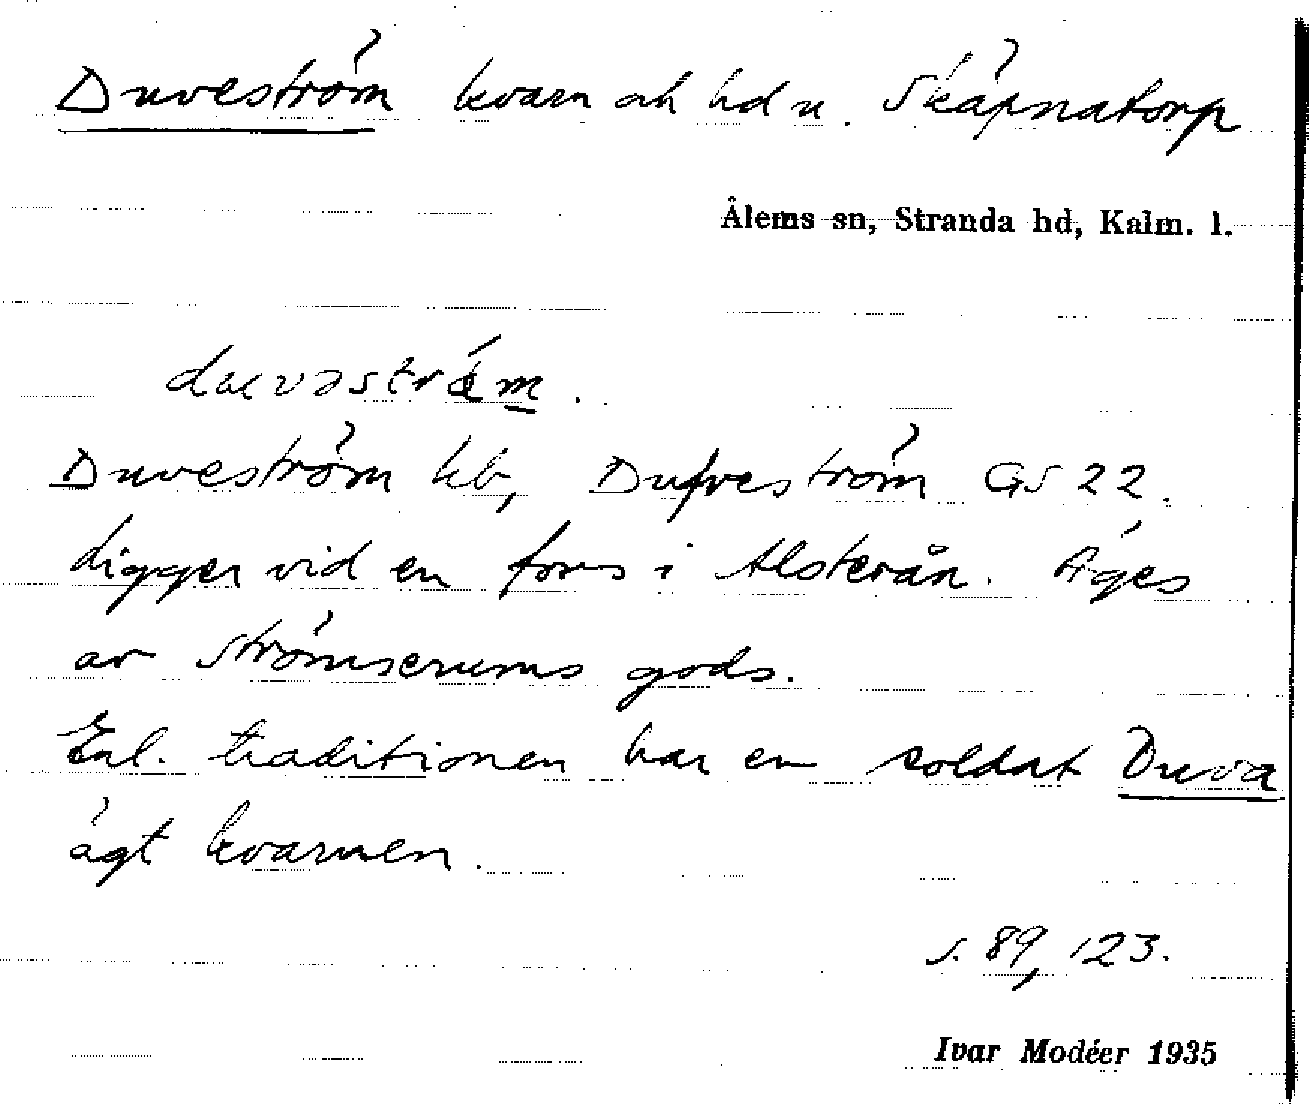 Duveström kvarn och hd u. Skäpnatorp
Ålems sn, Stranda hd, Kalm. l.
Duveström kb, Dufveström GS 22.
Ligger vid en fors i Alsterån. Äges
av Strömserums gods.
Enl. traditionen har en soldat Duva
ägt kvarnen.
s. 89, 123.
Ivar Modéer 1935